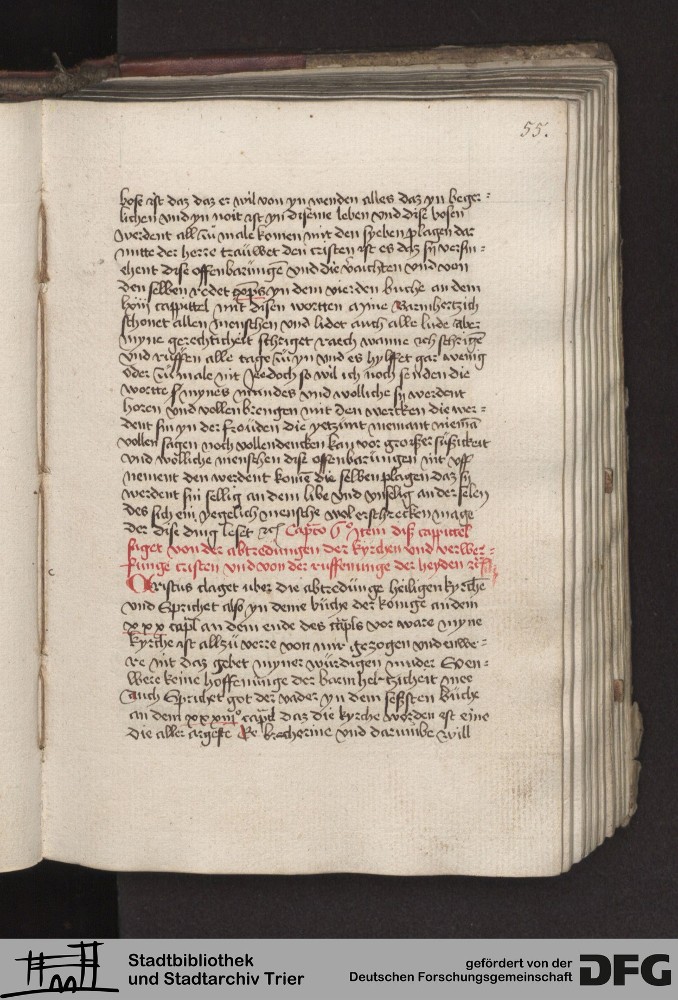 55.
bose ist daz daz er wil von yn wenden alles daz yn beger=
lichen vnd yn noit ist yn diseme leben vnd dise bosen
werdent all zů male komen mit den syeben plagen dar
mitte der herre trauwet den cristen ist es daz sy versm=
ehent dise offenbarůngē vnd die vachten vnd von
den selben redet xp̄us yn dem vierden buche an dem
lxiij cappittel mit disen wortten Myne Barmhertzich
schonet allen menschen vnd lidet auch alle lude aber
myne gerechticheit schriget raech wanne ich schrigē
vnd růffen alle tage zů yn vnd es hylffet gar wenig
oder zů male nit Jedoch so wil ich noch senden die
wortte mynes můndes vnd wolliche sy werdent
horen vnd vollenbrengen mit den wercken die wer=
dent sin yn der froůden die yetzůnt niemant niemā
vollen sagen noch vollendencken kan vor grosßer sußickeit
vnd wolliche menschen dise offenbarůngen nit vff
nement den werdent komē die selben plagen daz sy
werdent sin sellig an dem libe vnd vnselig an der selen
des sich ein yegelich mensche wol erschrecken mage
der dise ding leset Capto 6º Jtem diß cappittel
saget von der abtredungen der kyrchen vnd verwer=
funge cristen vnd von der ruffenunge der heyden
Cristus claget uber die abtredůnge heiligen kyrchē
vnd Sprichet also yn deme bůche der konige an dem
xxx capl an dem ende des capls vor ware myne
kyrche ist allzů verre von mir gezogen vnd enwe=
re nit daz gebet myner wůrdigen můder Soen=
were keine hoffenůnge der barmhertzicheit mee
Auch Sprichet got der vader yn dem seßsten Bůche
an dem xxxiijº capl daz die kyrche worden ist eine
die aller argeste brecherine vnd darumbe will
Stadtbibliothek
und Stadtarchiv Trier
gefördert von der
Deutschen Forschungsgemeinschaft
DFG